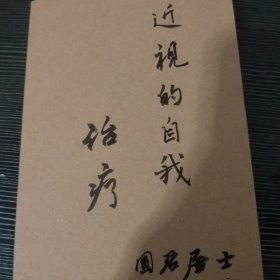 近視的自我
治疗
圓君居士